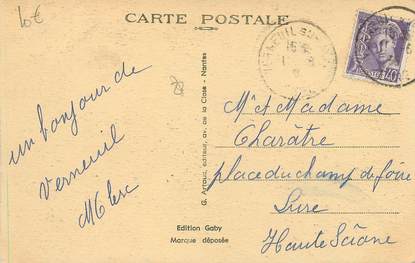 10€
CARTE POSTALE
un bonjour de
Verneuil
MClerc
G. Artaud, éditeur, av. de la Close - Nantes
Edition Gaby
Marque déposée
VERNEUIL
Mr et Madame
Charâtre
place du champ de foire
Lure
Haute Saône